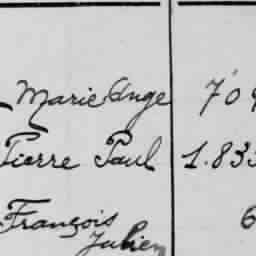 Marie Ange 709
Pierre Paul 1.833
François 6
Julien